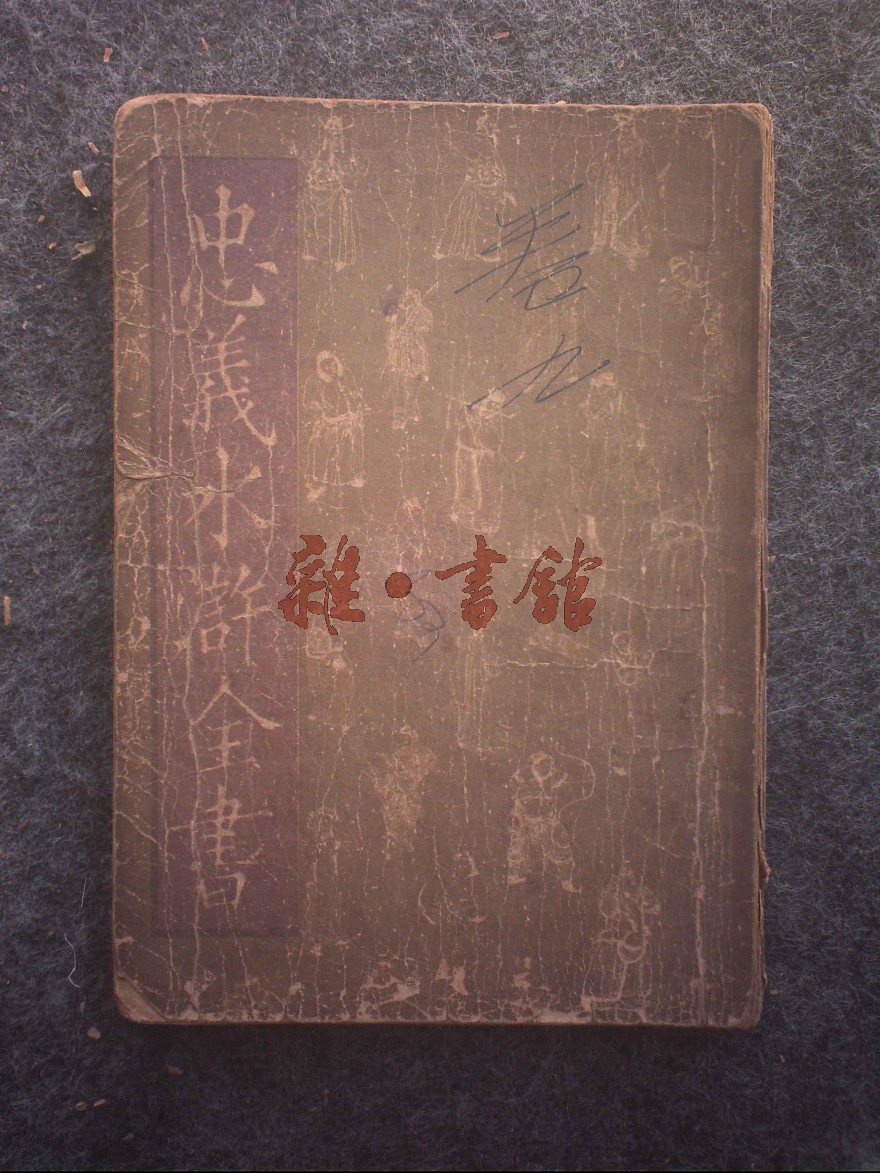 忠義水滸全書
卷九
雜·書館